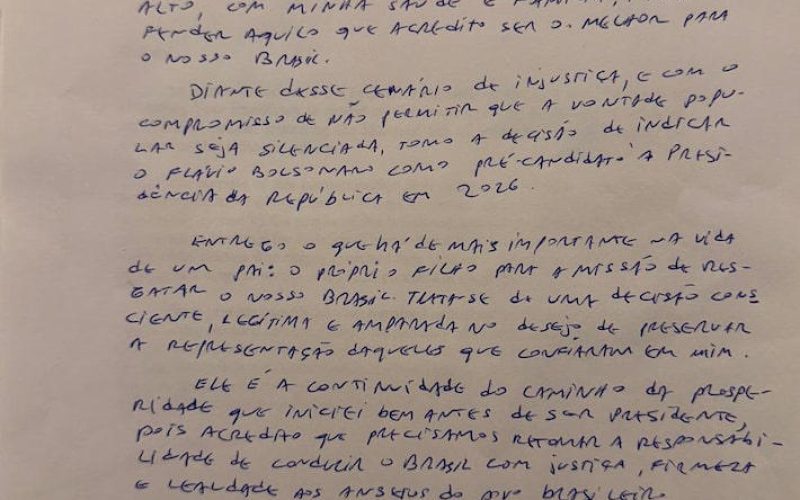 ALTO, COM MINHA SAÚDE E FAMÍLIA,
FENDER AQUILO QUE ACREDITO SER O MELHOR PARA
O NOSSO BRASIL.
DIANTE DESSE CENÁRIO DE INJUSTIÇA, E COM O
COMPROMISSO DE NÃO PERMITIR QUE A VONTADE POPU-
LAR SEJA SILENCIADA, TOMO A DECISÃO DE INDICAR
O FLÁVIO BOLSONARO COMO PRÉ-CANDIDATO À PRESI-
DÊNCIA DA REPÚBLICA EM 2026.
ENTREGO O QUE HÁ DE MAIS IMPORTANTE NA VIDA
DE UM PAI: O PRÓPRIO FILHO PARA A MISSÃO DE RES-
GATAR O NOSSO BRASIL. TRATA-SE DE UMA DECISÃO CONS
CIENTE, LEGÍTIMA E AMPARADA NO DESEJO DE PRESERVAR
A REPRESENTAÇÃO DAQUELES QUE CONFIARAM EM MIM.
ELE É A CONTINUIDADE DO CAMINHO DA PROSPE-
RIDADE QUE INICIEI BEM ANTES DE SER PRESIDENTE,
POIS ACREDITO QUE PRECISAMOS RETOMAR A RESPONSABI-
LIDADE DE CONDUZIR O BRASIL COM JUSTIÇA, FIRMEZA
E LEALDADE AOS ANSEIOS DO POVO BRASILEIRO